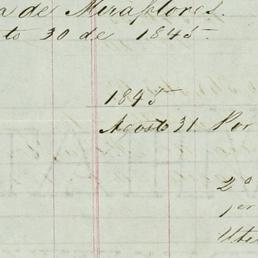 a de Miraflores.
to 30 de 1845.
1845
Agosto 31. Por
2º
per